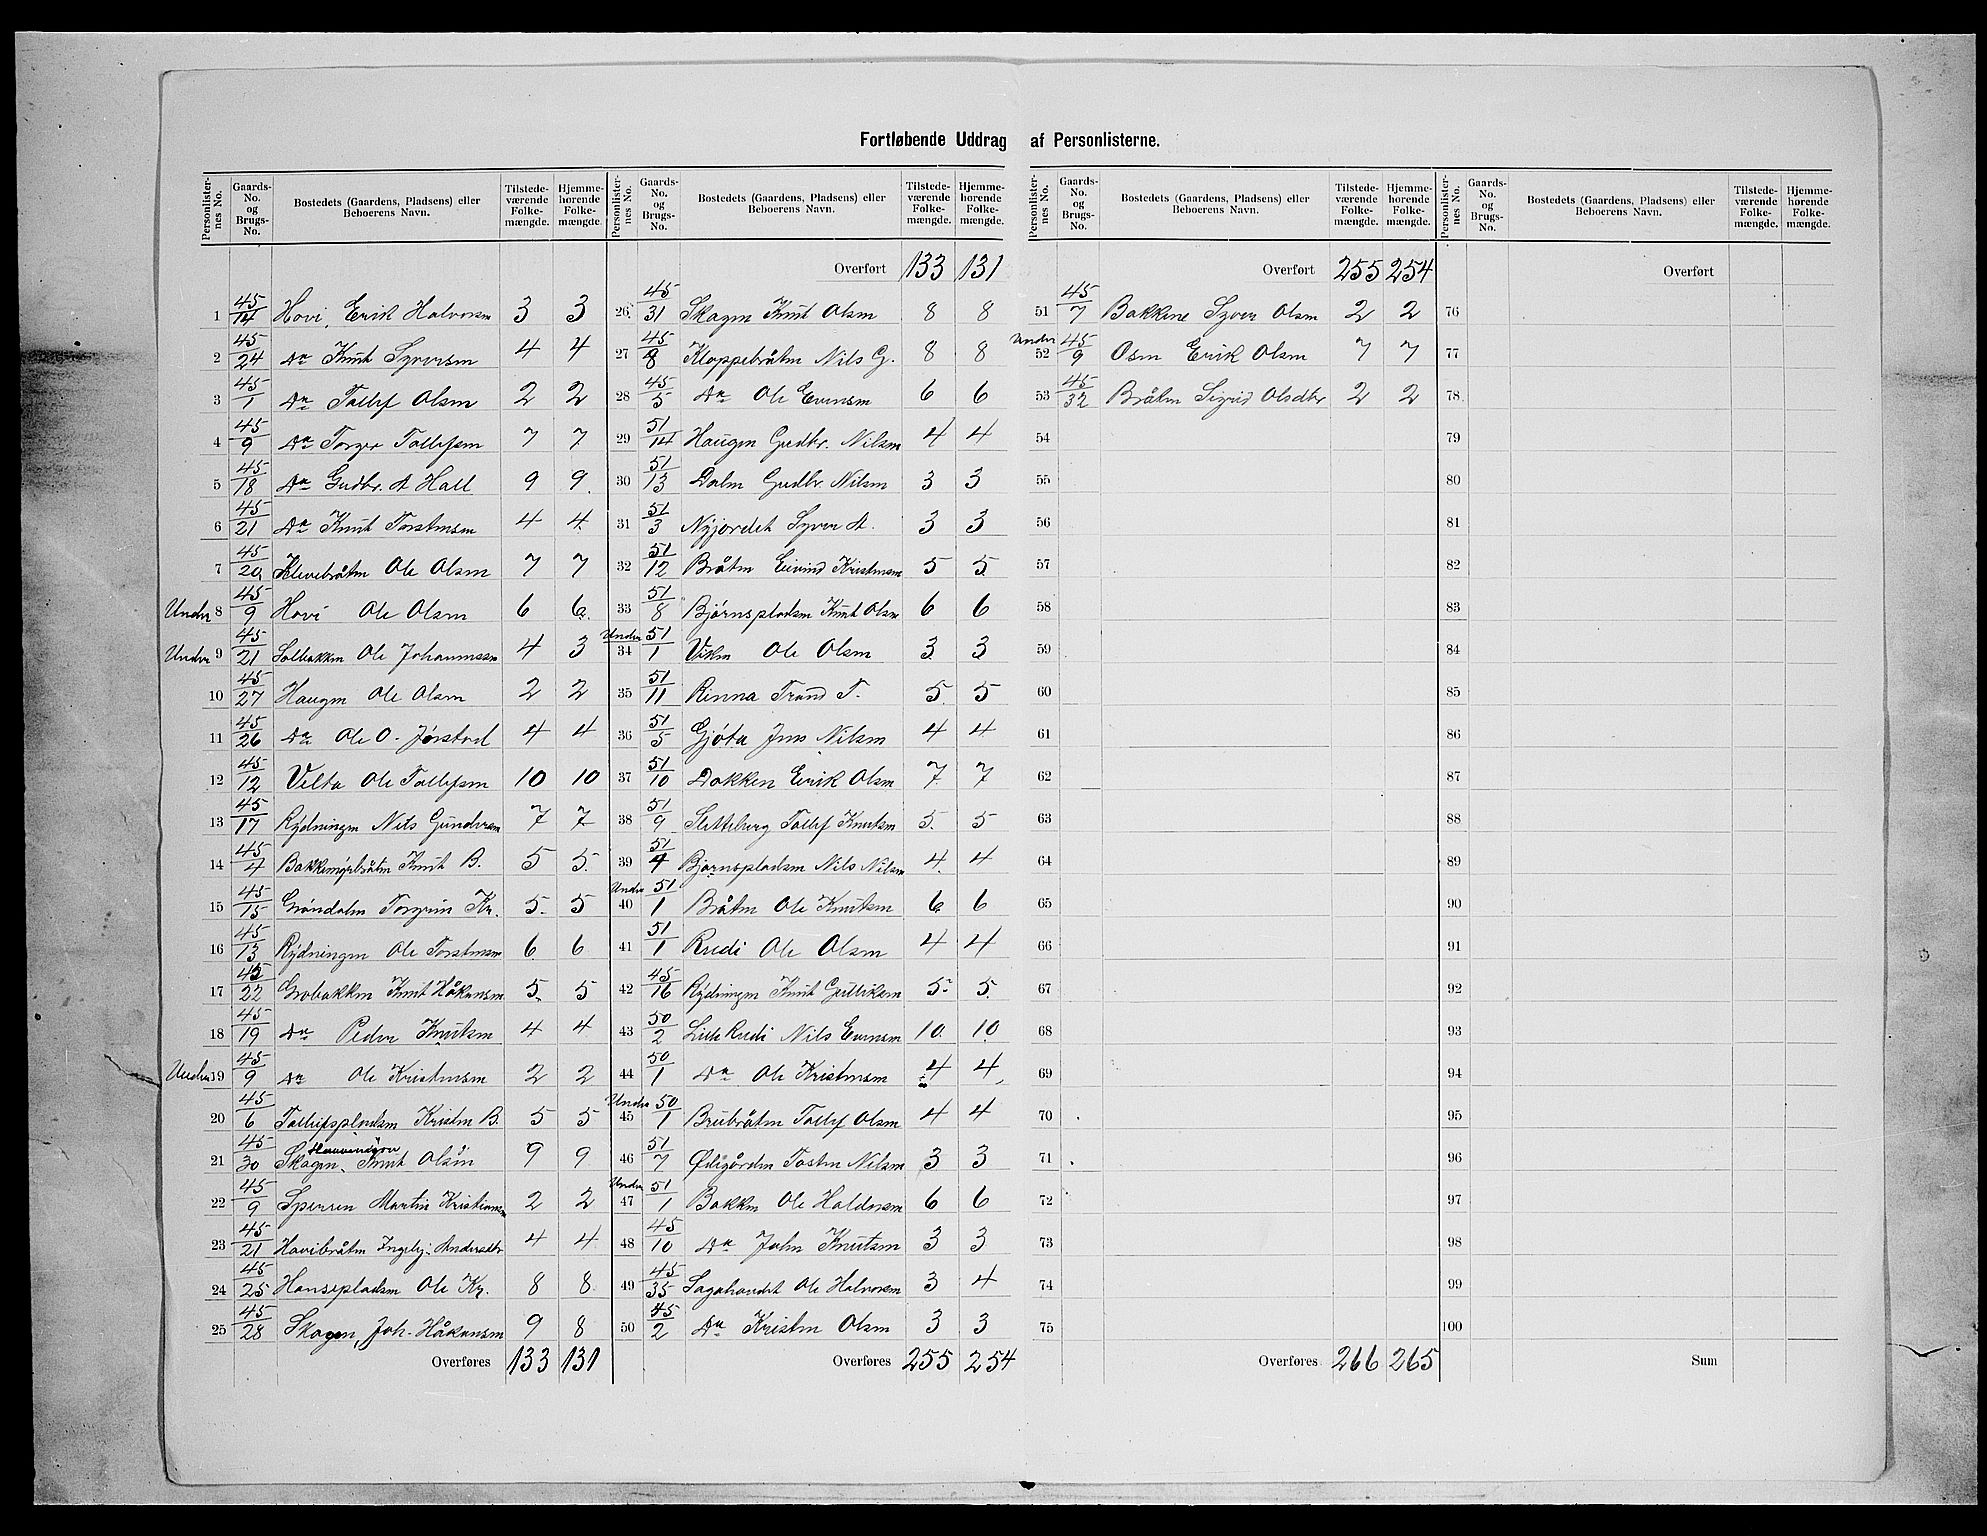 Fortløbende Uddrag af Personlisterne.
Personlisternes No. Gaards-No. og Brugs-No. Bostedets (Gaardens, Pladsens) eller Beboerens Navn. Tilstedeværende Folkemængde. Hjemmehørende Folkemængde.
1 45/14 Hovi, Erik Halvorsen 3 3
2 45/24 Do Knut Syversen 4 4
3 45/1 Do Tollef Olsen 2 2
4 45/9 Do Torger Tollefsen 7 7
5 45/18 Do Gudbr. A Hall 9 9
6 45/21 Do Knut Torstensen 4 4
7 45/20 Klevebråten Ole Olsen 7 7
Under 8 45/9 Hovi Ole Olsen 6 6
Under 9 45/21 Solbakken Ole Johannessen 4 3
10 45/27 Haugen Ole Olsen 2 2
11 45/26 Do Ole O. Jørstad 4 4
12 45/12 Velta Ole Tollefsen 10 10
13 45/17 Rydningen Nils Gundersen 7 7
14 45/4 Knut B. 5 5
15 45/15 Grøndalen Torgrim Kr. 5 5
16 45/13 Rydningen Ole Torstensen 6 6
17 45/22 Grobakken Knut Håkensen 5 5
18 45/19 Do Peder Knutsen 4 4
Under 19 45/9 Do Ole Kristensen 2 2
20 45/6 Tollefspladsen Kristen B. 5 5
21 45/30 Skagen, Knut Olsen 9 9
22 45/9 Sperren Martin Kristiansen 2 2
23 45/21 Hovibråten Ingebj. Andersdtr 4 4
24 45/25 Hansepladsen Ole Kr. 8 8
25 45/28 Skogen, Joh. Håkensen 9 8
Overføres 133 131
Personlisternes No. Gaards-No. og Brugs-No. Bostedets (Gaardens, Pladsens) eller Beboerens Navn. Tilstedeværende Folkemængde. Hjemmehørende Folkemængde.
Overført 133 131
26 45/31 Skagen Knut Olsen 8 8
27 45/8 Kloppebråten Nils G. 8 8
28 45/5 Do Ole Evensen 6 6
29 51/14 Haugen Gudbr. Nilsen 4 4
30 51/13 Dalen Gudbr. Nilsen 3 3
31 51/3 Nyjordet Syver A. 3 3
32 51/12 Bråten Eivind Kristensen 5 5
33 51/8 Bjørnspladsen Knut Olsen 6 6
Under 34 51/1 Viken Ole Olsen 3 3
35 51/11 Rinna Trond T. 5 5
36 51/5 Gjøta Jens Nilsen 4 4
37 51/10 Dokken Erik Olsen 7 7
38 51/9 Sletteberg Tollef Knutsen 5 5
39 51/4 Bjørnspladsen Nils Nilsen 4 4
Under 40 51/1 Bråten Ole Knutsen 6 6
41 51/1 Rudi Ole Olsen 4 4
42 45/16 Rydningen Knut Gulliksen 5 5
43 50/2 Lille Rudi Nils Evensen 10 10
44 50/1 Do Ole Kristensen 4 4
Under 45 50/1 Brubråten Tollef Olsen 4 4
46 51/7 Ødegården Tosten Nilsen 3 3
Under 47 51/1 Bakken Ole Haldorsen 6 6
48 45/10 Do John Knutsen 3 3
49 45/35 Sagahaudet Ole Halvorsen 3 4
50 45/2 Do Kristen Olsen 3 3
Overføres 255 254
Personlisternes No. Gaards-No. og Brugs-No. Bostedets (Gaardens, Pladsens) eller Beboerens Navn. Tilstedeværende Folkemængde. Hjemmehørende Folkemængde.
Overført 255 254
51 45/7 Bakkene Syver Olsen 2 2
Under 52 45/9 Osen Erik Olsen 7 7
53 45/32 Bråten Sigrid Olsdtr 2 2
54
55
56
57
58
59
60
61
62
63
64
65
66
67
68
69
70
71
72
73
74
75
Overføres 266 265
Personlisternes No. Gaards-No. og Brugs-No. Bostedets (Gaardens, Pladsens) eller Beboerens Navn. Tilstedeværende Folkemængde. Hjemmehørende Folkemængde.
Overført
76
77
78
79
80
81
82
83
84
85
86
87
88
89
90
91
92
93
94
95
96
97
98
99
100
Sum